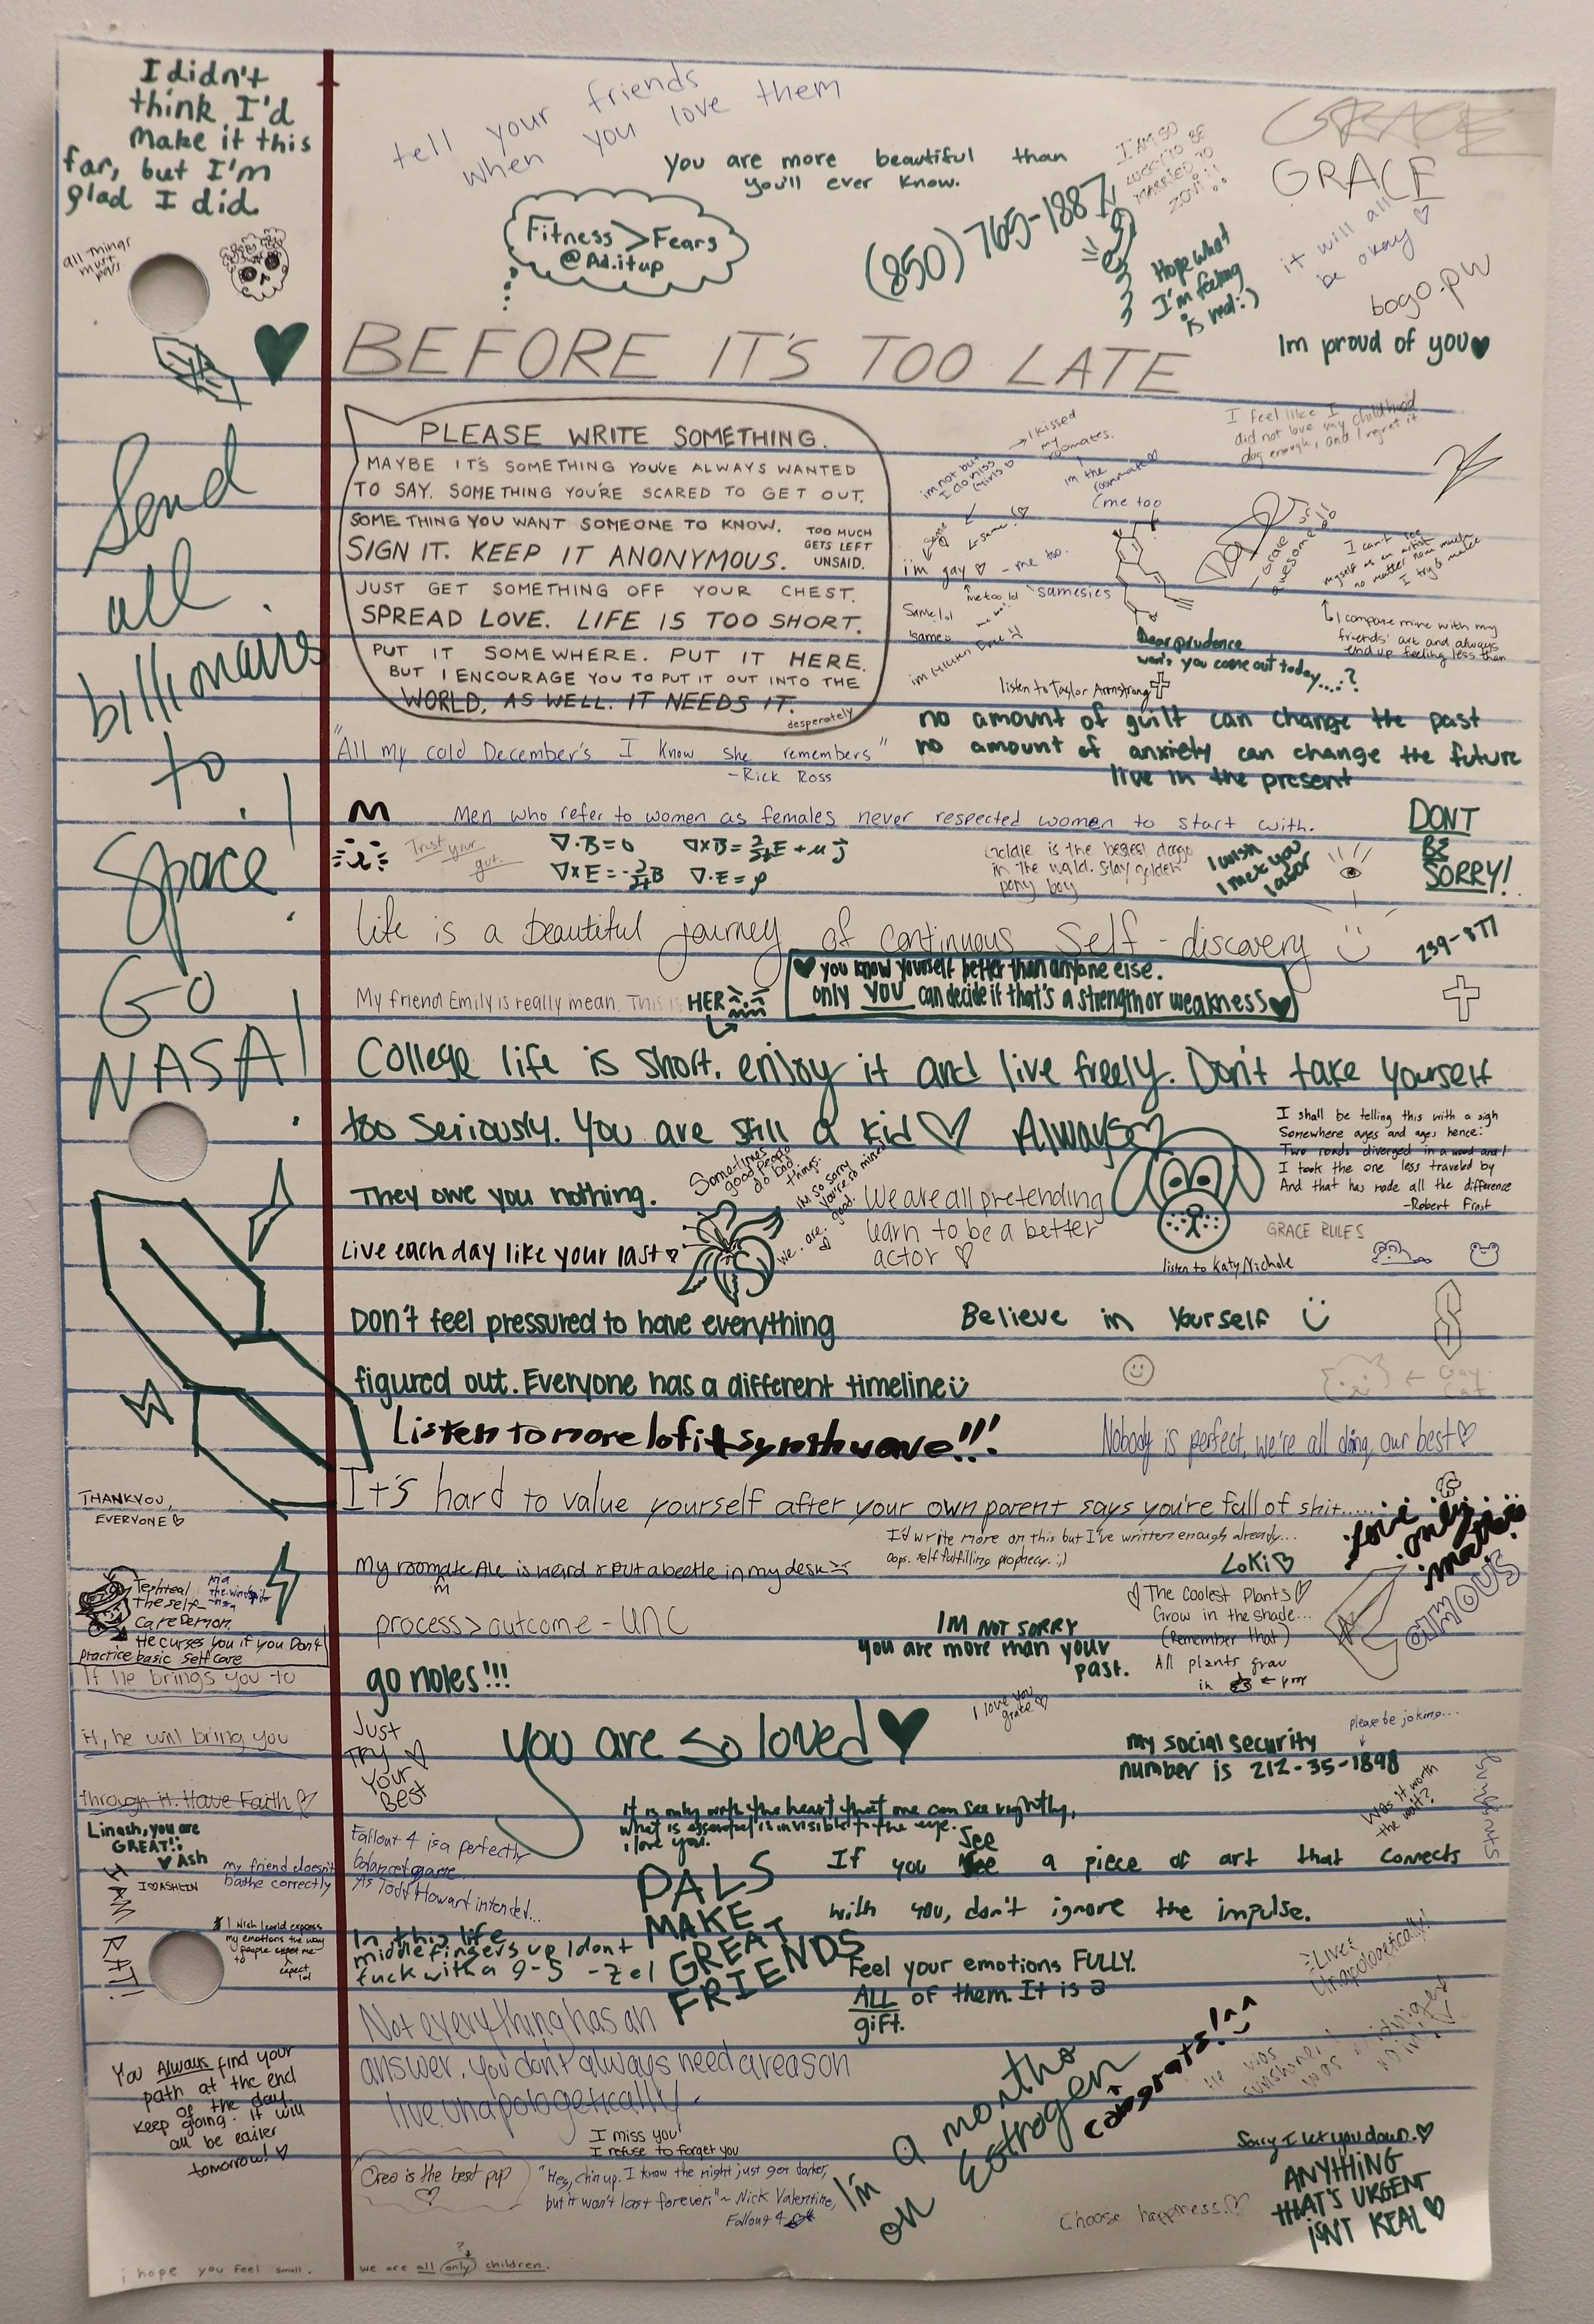 I didn't
think I'd
make it this
far, but I'm
glad I did.
all things
must
pass
Send
all
billionaires
to
Space!
GO
NASA!
tell your friends
when you love them
you are more beautiful than
you'll ever know.
Fitness>Fears
@Ad.itup
(850) 765-1887
I AM SO
LUCKY TO BE
MARRIED TO
ZOVI!!
GRACE
GRACE
it will all
be okay
Hope what
I'm feeling
is real :)
bogo.pw
Im proud of you
BEFORE IT'S TOO LATE
PLEASE WRITE SOMETHING.
MAYBE IT'S SOMETHING YOU'VE ALWAYS WANTED
TO SAY. SOMETHING YOU'RE SCARED TO GET OUT.
SOMETHING YOU WANT SOMEONE TO KNOW.
SIGN IT. KEEP IT ANONYMOUS.
TOO MUCH
GETS LEFT
UNSAID.
JUST GET SOMETHING OFF YOUR CHEST.
SPREAD LOVE. LIFE IS TOO SHORT.
PUT IT SOMEWHERE. PUT IT HERE.
BUT I ENCOURAGE YOU TO PUT IT OUT INTO THE
WORLD, AS WELL. IT NEEDS IT.
desperately
I kissed
my
roomates.
im the
roommate
(me too
im not but
I do kiss
girls
Same
same!
i'm gay - me too.
me too lol
samesies
Same lol
same
I feel like I
did not love my childhood
dog enough, and I regret it
I can't see
myself as an artist
no matter how much
I try & make
I compare mine with my
friends' art and always
end up feeling less than
Dear prudence
won't you come out today....?
listen to Taylor Armstrong
no amount of guilt can change the past
no amount of anxiety can change the future
live in the present
"All my cold December's I know she remembers"
-Rick Ross
M Men who refer to women as females never respected women to start with.
DONT
BE
SORRY!
Trust your
gut.
∇·B=0 ∇×B=∂/∂t E+μJ
∇×E=-∂/∂t B ∇·E=ρ
Goldie is the bestest doggo
in the world. Stay golden
pony boy
I wish
I met you
later
Life is a beautiful journey of continuous Self-discovery
239-877
you know yourself better than anyone else.
only YOU can decide if that's a strength or weakness
My friend Emily is really mean. This is HER
College life is short. enjoy it and live freely. Don't take yourself
too seriously. You are still a kid Always
I shall be telling this with a sigh
Somewhere ages and ages hence:
Two roads diverged in a wood and I
I took the one less traveled by
And that has made all the difference
-Robert Frost
They owe you nothing.
Sometimes
good people
do bad
things.
im so sorry
you're so mixed
good.
we. are.
We are all pretending
learn to be a better
actor
Live each day like your last
listen to Katy Nichole
GRACE RULES
Don't feel pressured to have everything
figured out. Everyone has a different timeline
Believe in Yourself
← Gay
Cat
Listen to more lofi + synthwave!!!
Nobody is perfect, we're all doing our best
It's hard to value yourself after your own parent says you're full of shit......
I'd write more on this but I've written enough already...
oops. self fulfilling prophecy. ;)
Love
only
matters
THANKYOU,
EVERYONE
My roomate Ale is weird & put a beetle in my desk
m
LOKI
the self-
care Demon.
He curses you if you Don't
practice basic self care
If he brings you to
it, he will bring you
through it. Have Faith
process > outcome - UNC
IM NOT SORRY
you are more than your
past.
The coolest plants
Grow in the shade...
(Remember that)
All plants grow
in ← poop
go noles!!!
I love you
grace
Just
Try
Your
Best
you are so loved
please be joking...
my social security
number is 212-35-1898
Was it worth
the wait?
It is only with the heart that one can see rightly,
what is essential is invisible to the eye.
i love you.
Linach, you are
GREAT!
Ash
I ♡ ASHLIN
I AM RAT!
my friend doesn't
bathe correctly
Fallout 4 is a perfectly
balanced game...
As Todd Howard intended...
See
If you a piece of art that connects
with you, don't ignore the impulse.
PALS
MAKE
GREAT
FRIENDS
I wish I could express
my emotions the way
people expect me
to
expect
lol
In this life
middle fingers up I dont
fuck with a 9-5 -zel
Feel your emotions FULLY.
ALL of them. It is a
gift.
Live
Unapologetically!
Not everything has an
answer, you don't always need a reason
live unapologetically.
You Always find your
path at the end
of the day
keep going. it will
all be easier
tomorrow!
I'm a month
on Estrogen
congrats! ^^
I miss you!
I refuse to forget you
Oreo is the best pup
"Hey, chin up. I know the night just got darker,
but it won't last forever." ~ Nick Valentine,
Fallout 4
Sorry I let you down.
Choose happiness.
ANYTHING
THAT'S URGENT
ISN'T REAL
i hope you feel small.
?
we are all only children.